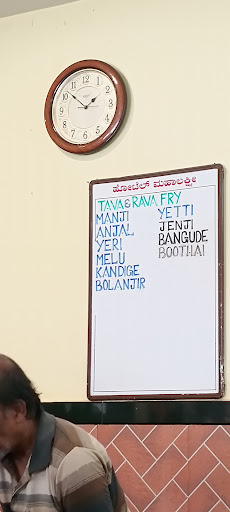 ಹೋಟೆಲ್ ಮಹಾಲಕ್ಷ್ಮೀ
TAVA & RAVA FRY
MANJI
ANJAL
YERI
MELU
KANDIGE
BOLANJIR
YETTI
JENJI
BANGUDE
BOOTHAI